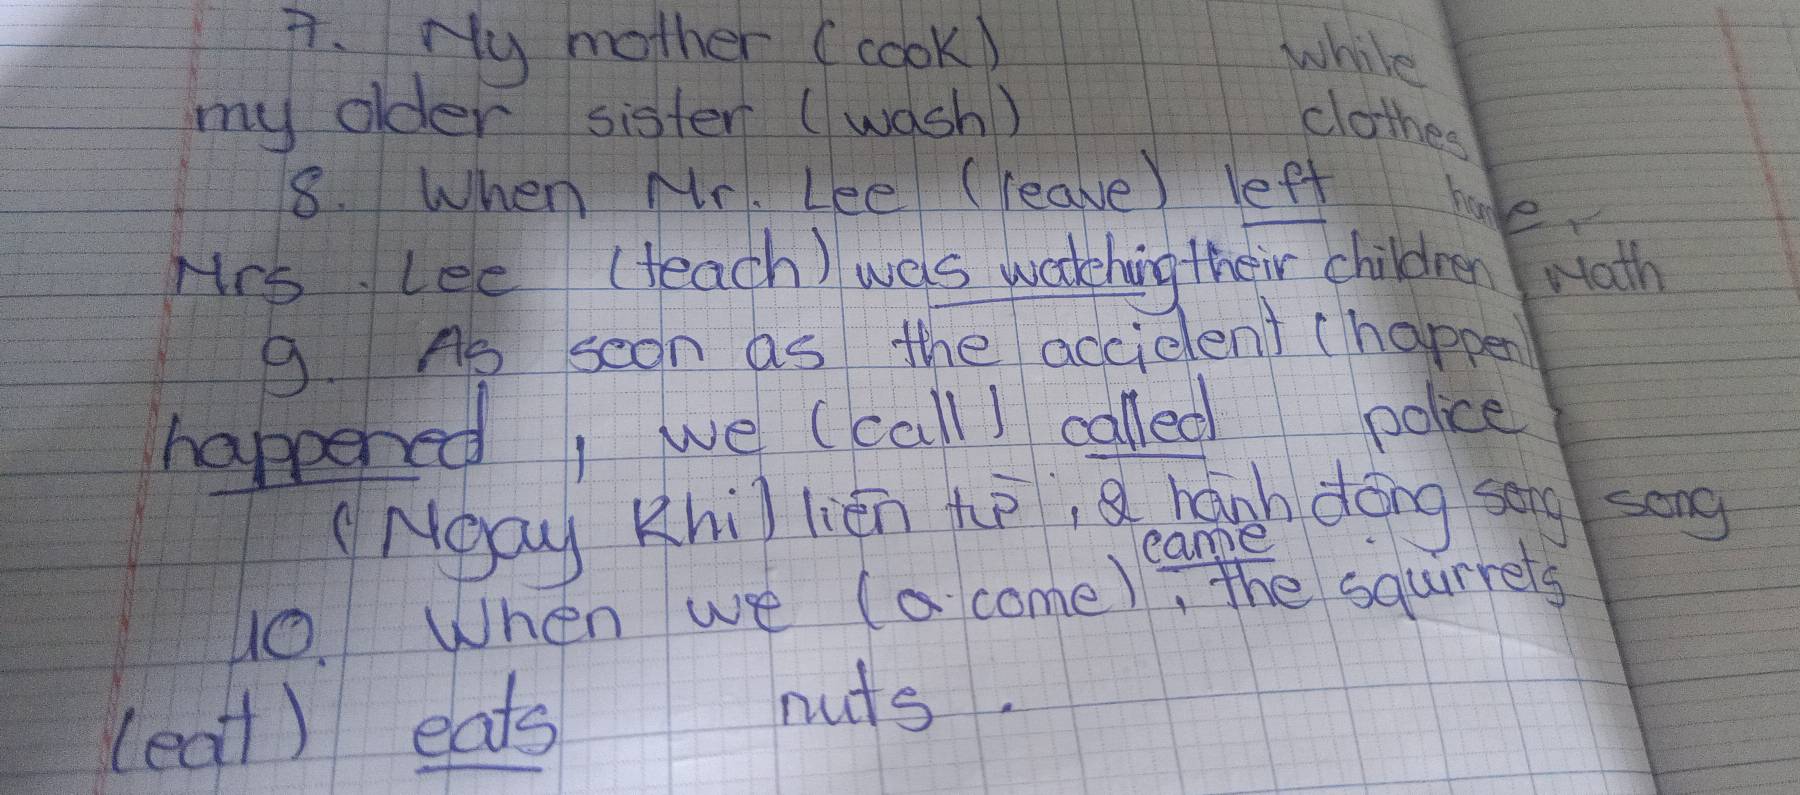 7. My mother (cook) while
my older sister (wash) clothes
8. When Mr. Lee (leave) left home,
Mrs. Lee (teach) was watching their children Math
9. As soon as the accident (happen)
happened, we (call) called police
(Ngay khi) liên từ, 2 hành động song song
came
10. When we (a.come), the squirrels
(eat) eats nuts.